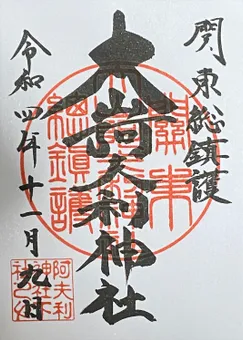 関東総鎮護
大山阿夫利神社
令和四年十一月九日
關東總鎮護
阿夫利神社下社之印